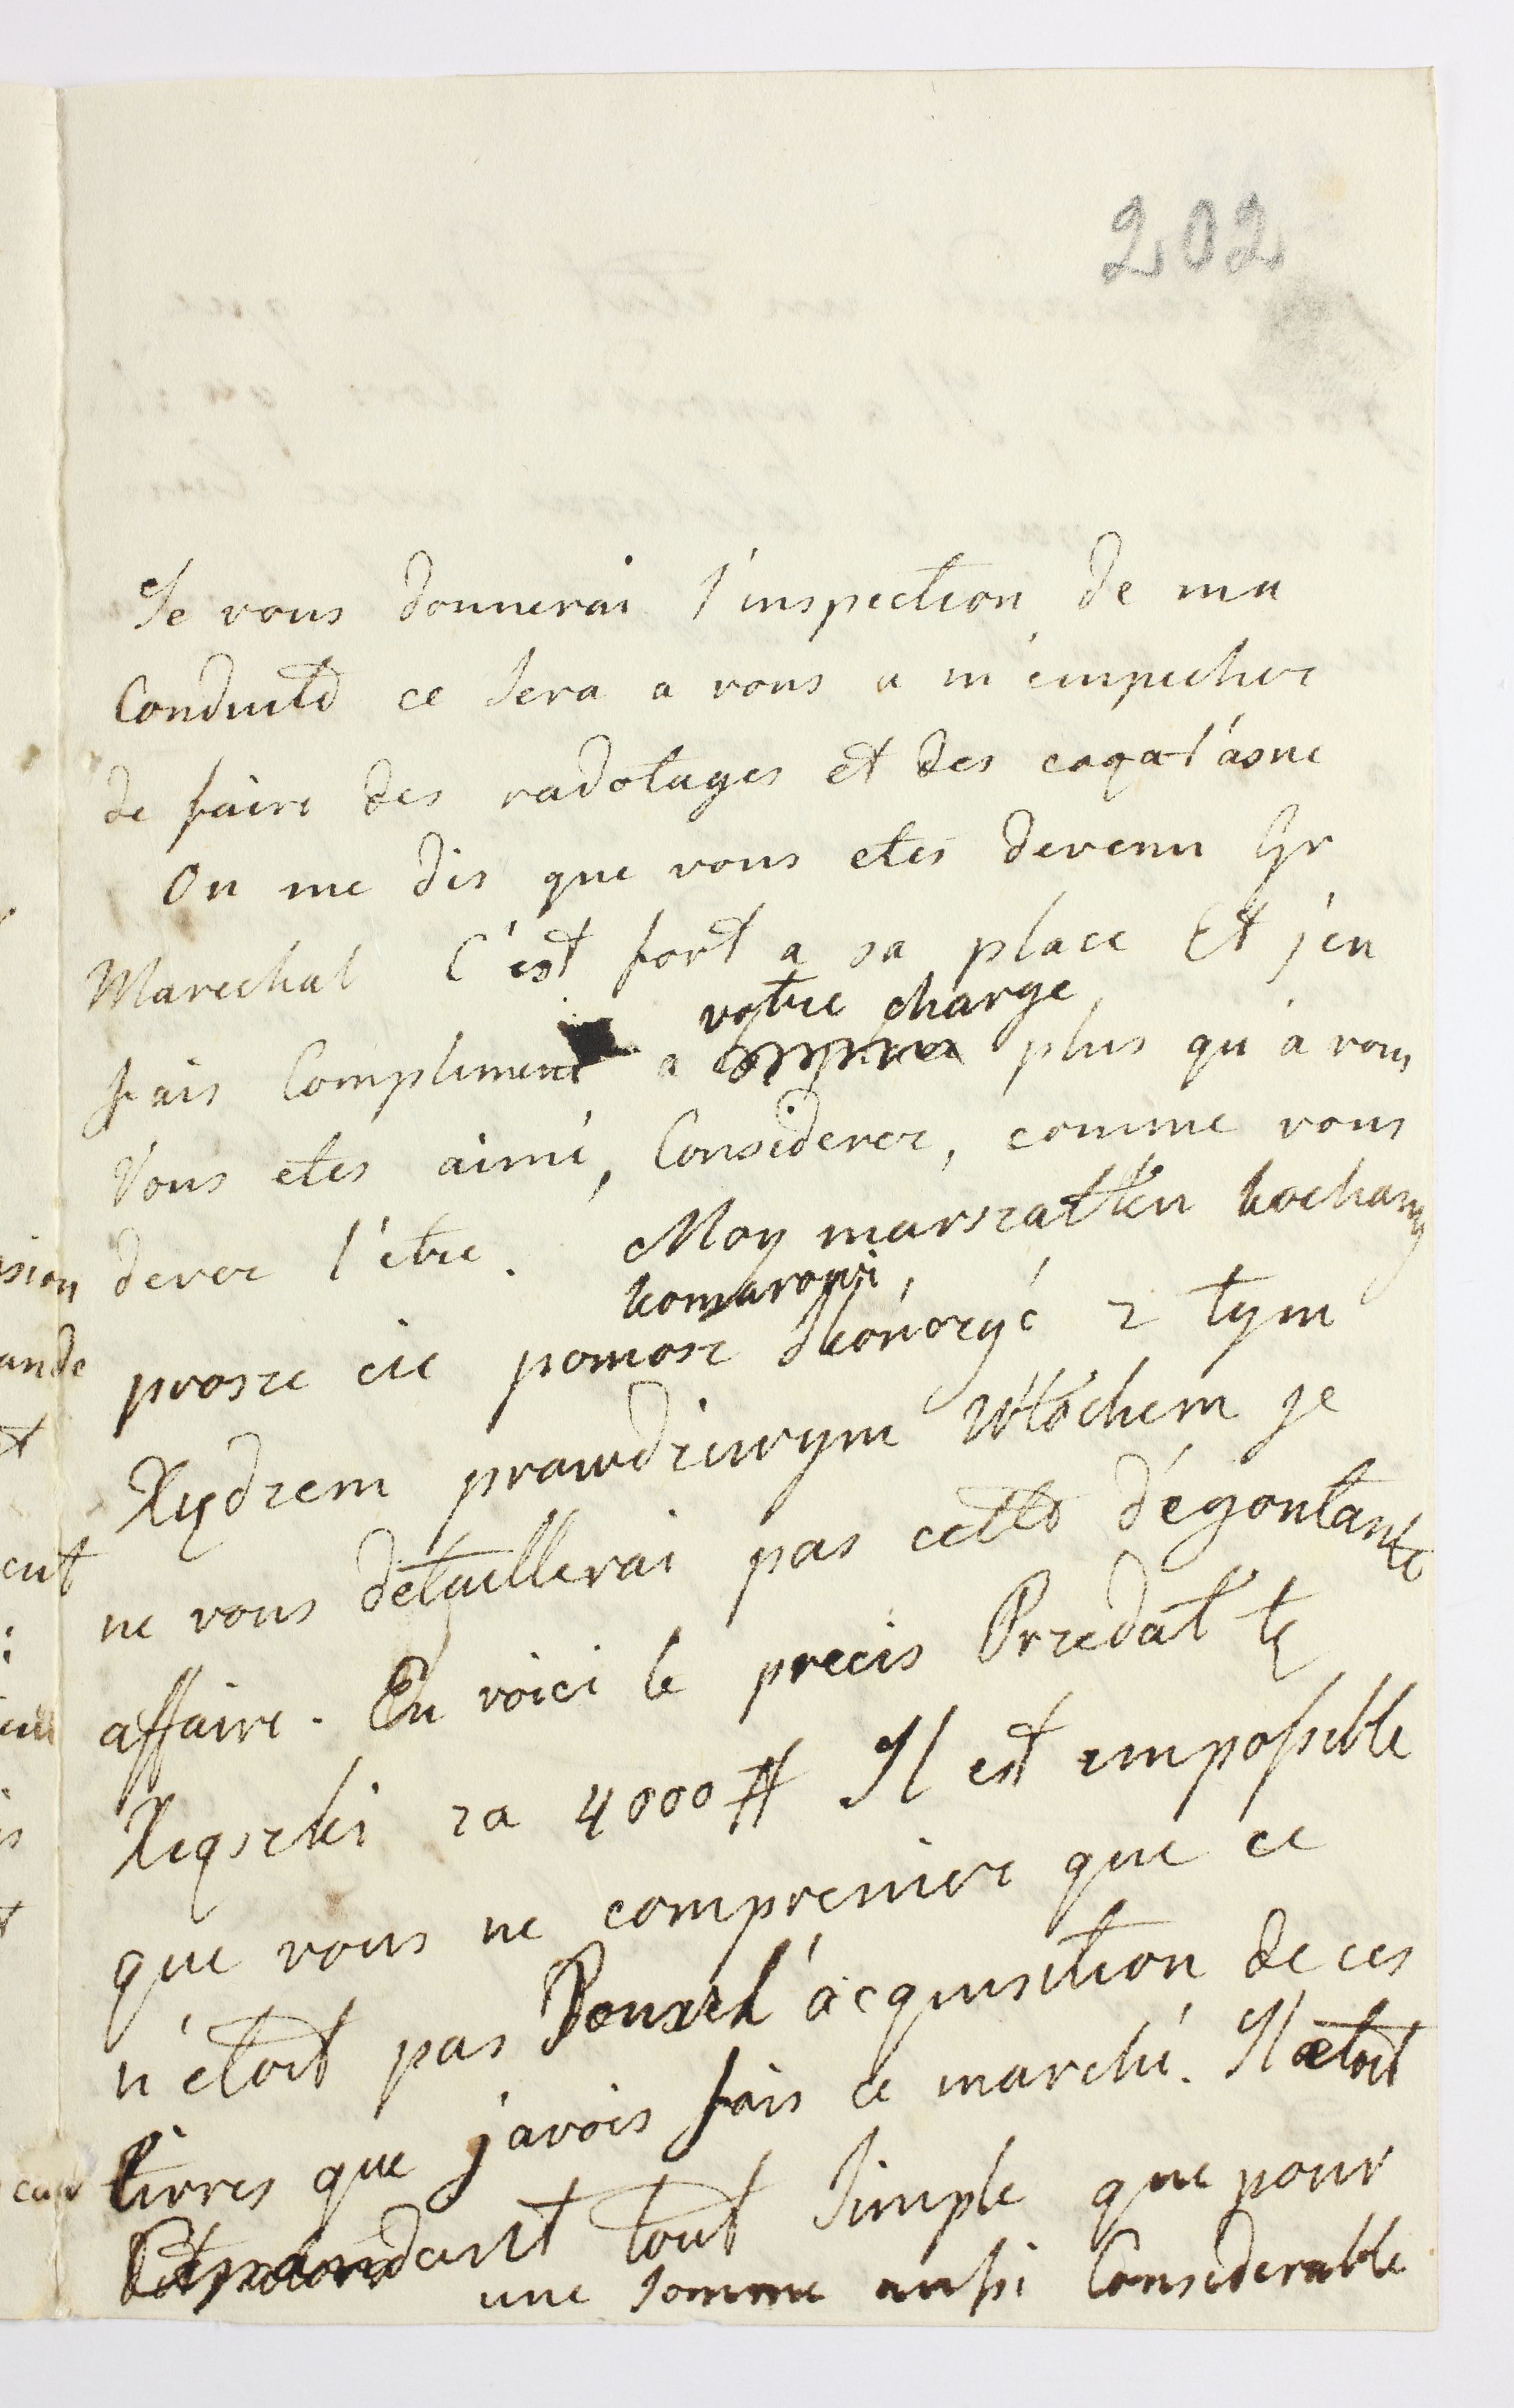 202
Je vous donnerai l'inspection de ma
Conduite ce sera a vous a m'empecher
de faire des radotages et des coqal'asne
On me dis que vous etes devenu Gr
Marechal C'est fort a sa place Et j'en
votre charge
fais Compliment a plus qu'a vous
Vous etes aimé, Considerez, comme vous
devez l'etre. Moy marszałku kochany
komarowi
prosze cie pomosz skończyć z tym
Xiędzem prawdziwym Włochem je
ne vous detaillerai pas cette dégoutante
affaire. En voici le precis Przedał te
Xiąszki za 4000 # Il est impossible
que vous ne compreniez que ce
n'etoit pas Pour l'acquisition de ces
Livres que j'avois fais ce marché. Il etoit
Cependant tout simple que pour
une somme aussi Considerable